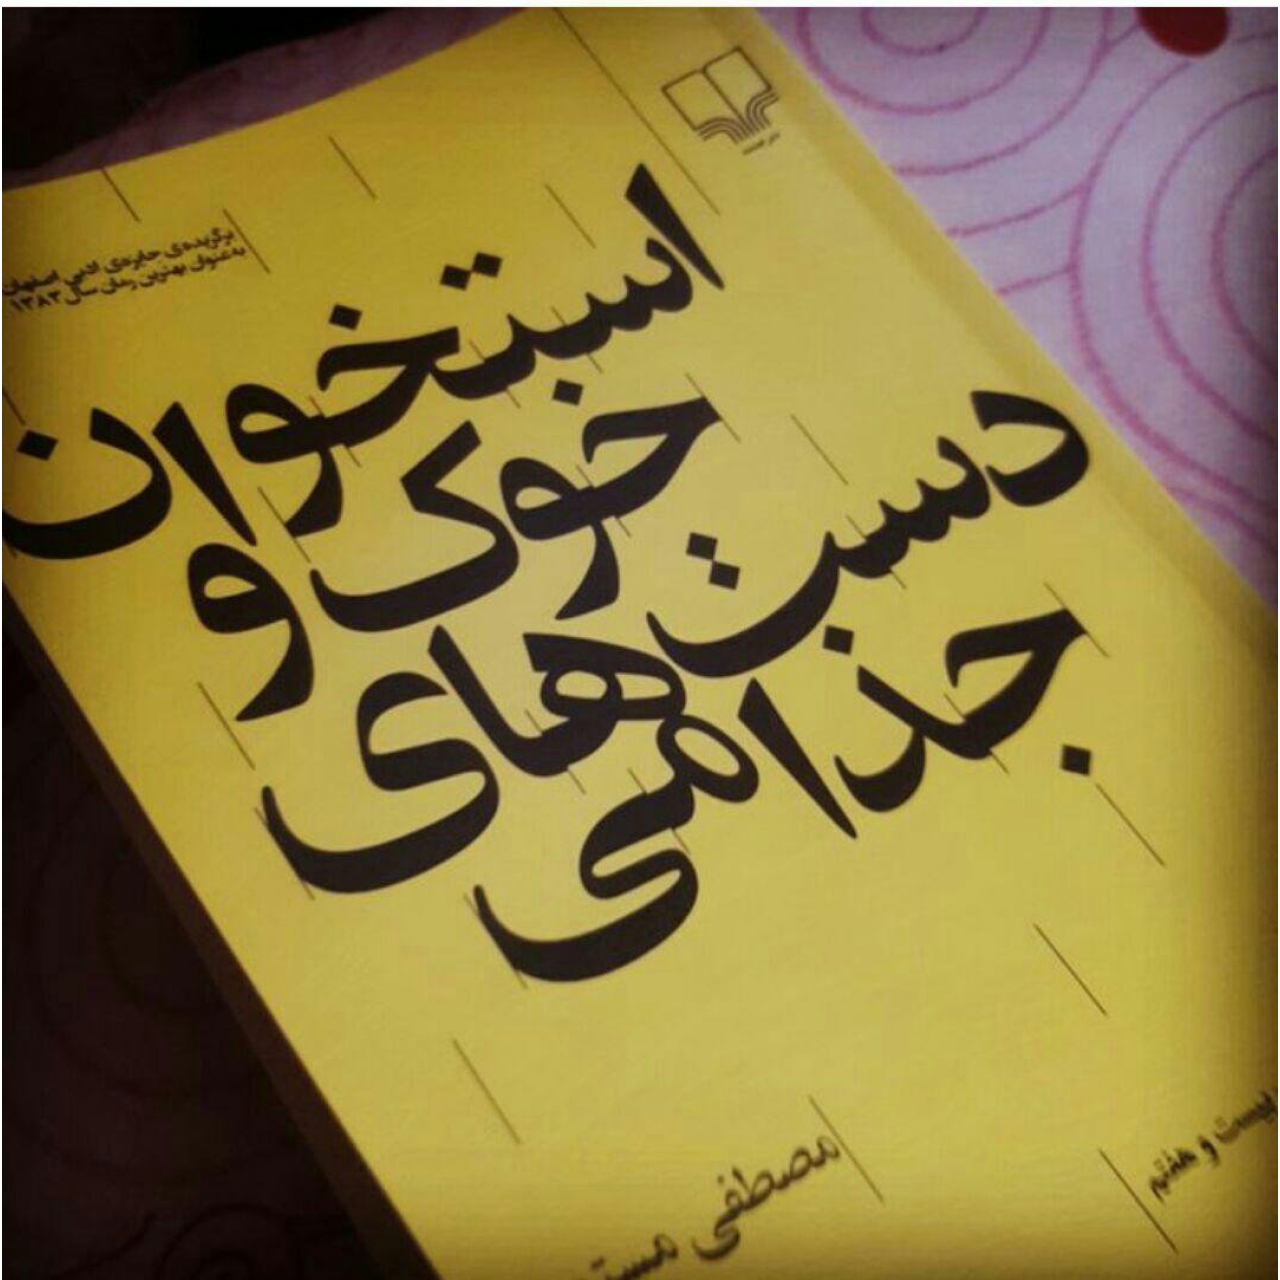 برگزیده‌ی جایزه‌ی ادبی اصفهان
به عنوان بهترین رمان سال ۱۳۸۳
استخوان
خوک و
دست‌های
جذامی
مصطفی مست
بیست و هفتم